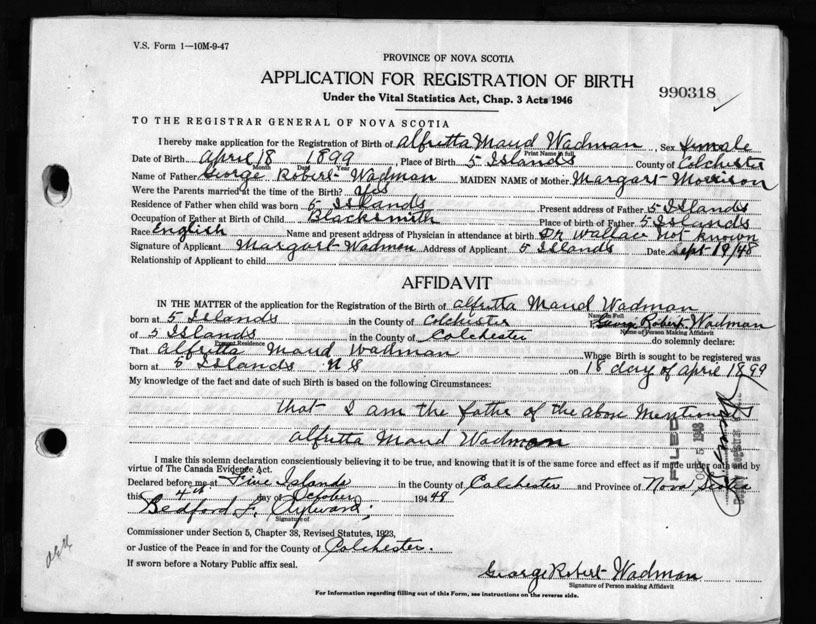 V.S. Form 1—10M-9-47
PROVINCE OF NOVA SCOTIA
APPLICATION FOR REGISTRATION OF BIRTH
Under the Vital Statistics Act, Chap. 3 Acts 1946
990318
TO THE REGISTRAR GENERAL OF NOVA SCOTIA
I hereby make application for the Registration of Birth of Alfretta Maud Wadman, Sex female
Print Name in full
Date of Birth April 18 1899, Place of Birth 5 Islands County of Colchester
Month Date Year
Name of Father George Robert Wadman MAIDEN NAME of Mother Margart Morrison
Were the Parents married at the time of the Birth? Yes
Residence of Father when child was born 5 Islands Present address of Father 5 Islands
Occupation of Father at Birth of Child Blacksmith Place of birth of Father 5 Islands
Race English Name and present address of Physician in attendance at birth Dr Wallace not known
Signature of Applicant Margart Wadman Address of Applicant 5 Islands Date Sept 19/48
Relationship of Applicant to child
AFFIDAVIT
IN THE MATTER of the application for the Registration of the Birth of Alfretta Maud Wadman
Name in full
born at 5 Islands in the County of Colchester George Robert Wadman
Name of Person Making Affidavit
of 5 Islands in the County of Colchester do solemnly declare:
Present Residence
That Alfretta Maud Wadman Whose Birth is sought to be registered was
born at 5 Islands N S on 18 day of April 1899
My knowledge of the fact and date of such Birth is based on the following Circumstances:
that I am the fathe of the above mentioned
Alfretta Maud Wadman
FILED
1948
I make this solemn declaration conscientiously believing it to be true, and knowing that it is of the same force and effect as if made under oath and by
virtue of The Canada Evidence Act.
Declared before me at Five Islands in the County of Colchester and Province of Nova Scotia
this 4th day of October 1948
Bedford F.
Signature of
Commissioner under Section 5, Chapter 38, Revised Statutes, 1923,
or Justice of the Peace in and for the County of Colchester.
If sworn before a Notary Public affix seal.
George Robert Wadman
Signature of Person making Affidavit
For Information regarding filling out of this Form, see instructions on the reverse side.